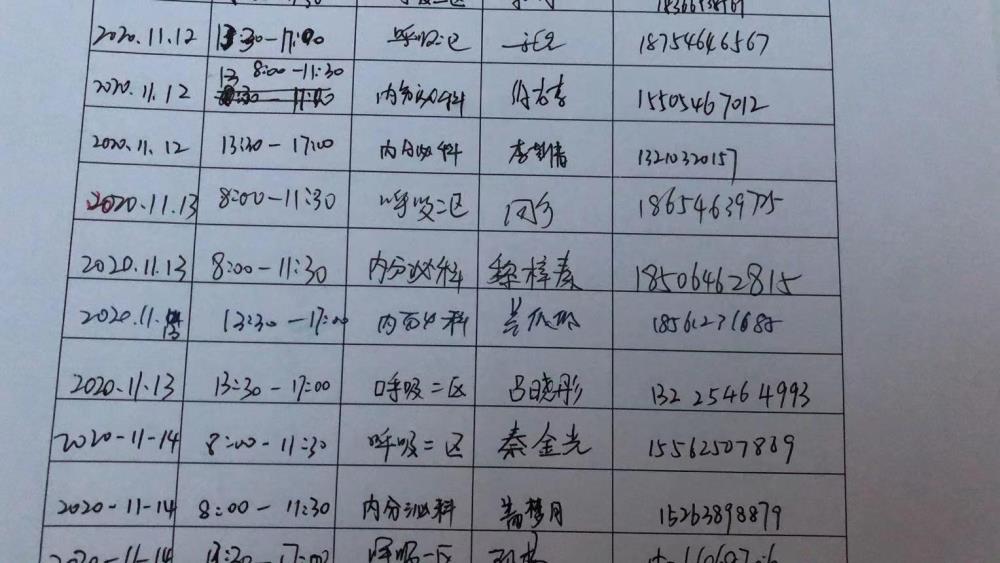 2020.11.12 13:30-17:00 呼吸二区 18754646567
2020.11.12 13 8:00-11:30 内分泌科 15505467012
2020.11.12 13:30-17:00 内分泌科 李新倩 13210320157
2020.11.13 8:00-11:30 呼吸二区 18654639725
2020.11.13 8:00-11:30 内分泌科 綦梓秦 18506462815
2020.11.13 13:30-17:00 内分泌科
2020.11.13 13:30-17:00 呼吸二区 吕晓彤 13225464993
2020-11-14 8:00-11:30 呼吸二区 秦金光 15562507889
2020-11-14 8:00-11:30 内分泌科 15263898879
2020-11-14 13:30-17:00